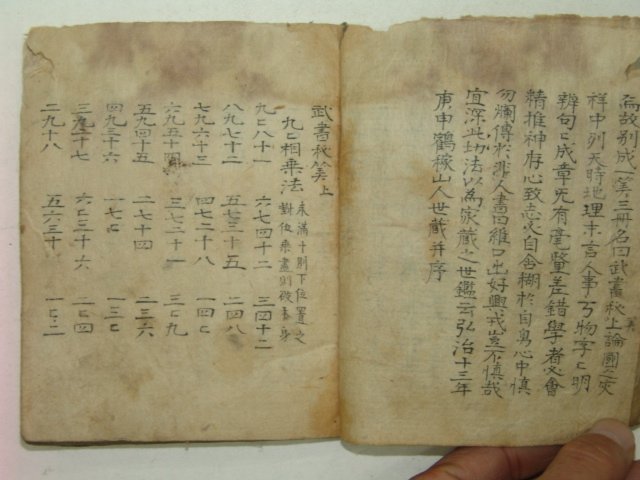 為故別成一筭三冊名曰武書秘筭上論國之灾
祥中列天時地理末言人事万物字〻明
辨句〻成章无有毫釐差錯學者必會
精推神存心致志文自舍糊於自身心中慎
勿爛傳於非人書曰維口出好興戎豈不慎哉
宜深此功法以為家藏之世鑑云弘治十三年
庚申鶴稼山人世蔵并序
武書秘筭上
九〻相乘法 未滿十則下位置之
對位乘盡則破本身
九〻八十一 六七四十二 三四十二
八九七十二 五七三十五 二四八
七九六十三 四七二十八 一四〻
六九五十四 三七二十一 三〻九
五九四十五 二七十四 二三六
四九三十六 一七〻 一三〻
三九二十七 六〻三十六 二〻四
二九十八 五六三十 一〻二